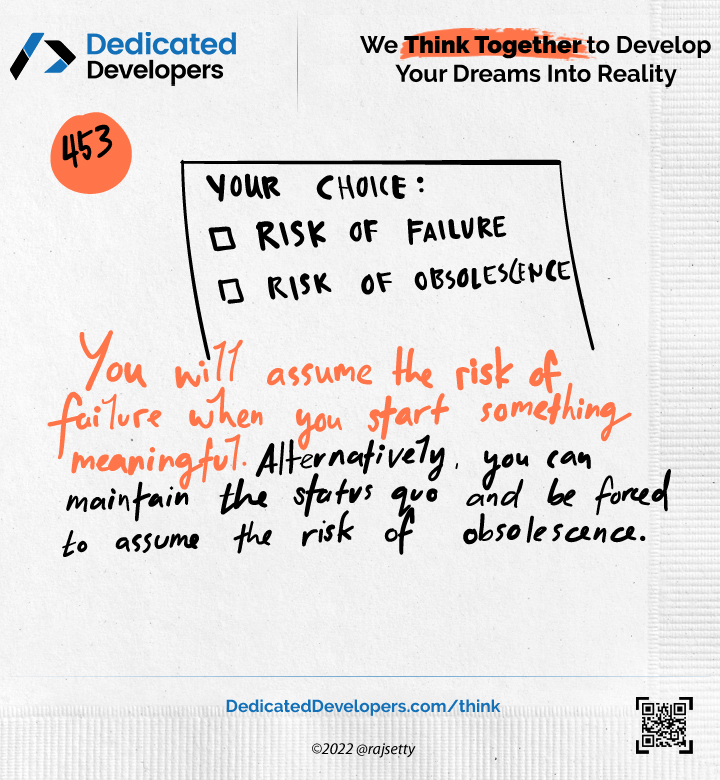 Dedicated
Developers
We Think Together to Develop
Your Dreams Into Reality
453
YOUR CHOICE:
RISK OF FAILURE
RISK OF OBSOLESCENCE
You will assume the risk of
failure when you start something
meaningful. Alternatively, you can
maintain the status quo and be forced
to assume the risk of obsolescence.
DedicatedDevelopers.com/think
©2022 @rajsetty